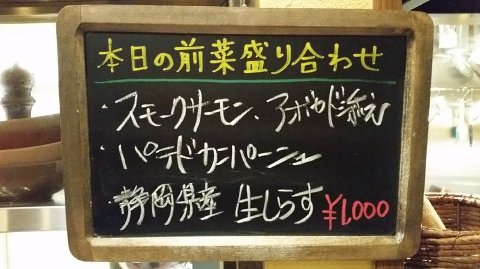 本日の前菜盛り合わせ
・スモークサーモン、アボカド添え
・パテドカンパーニュ
・静岡県産 生しらす ¥1,000